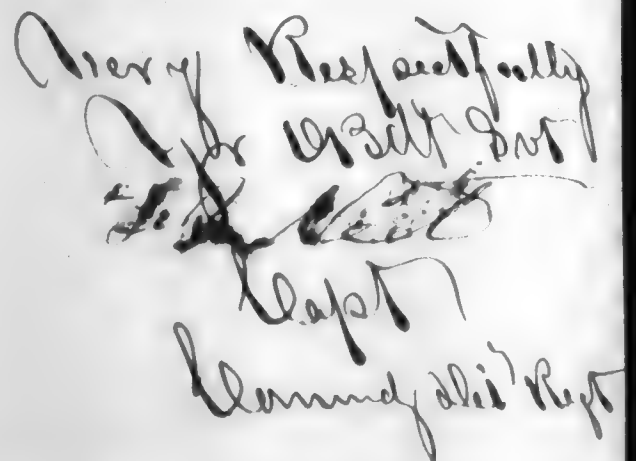 Very Respectfully
Yr Obt Svt
Capt
Commdg Regt